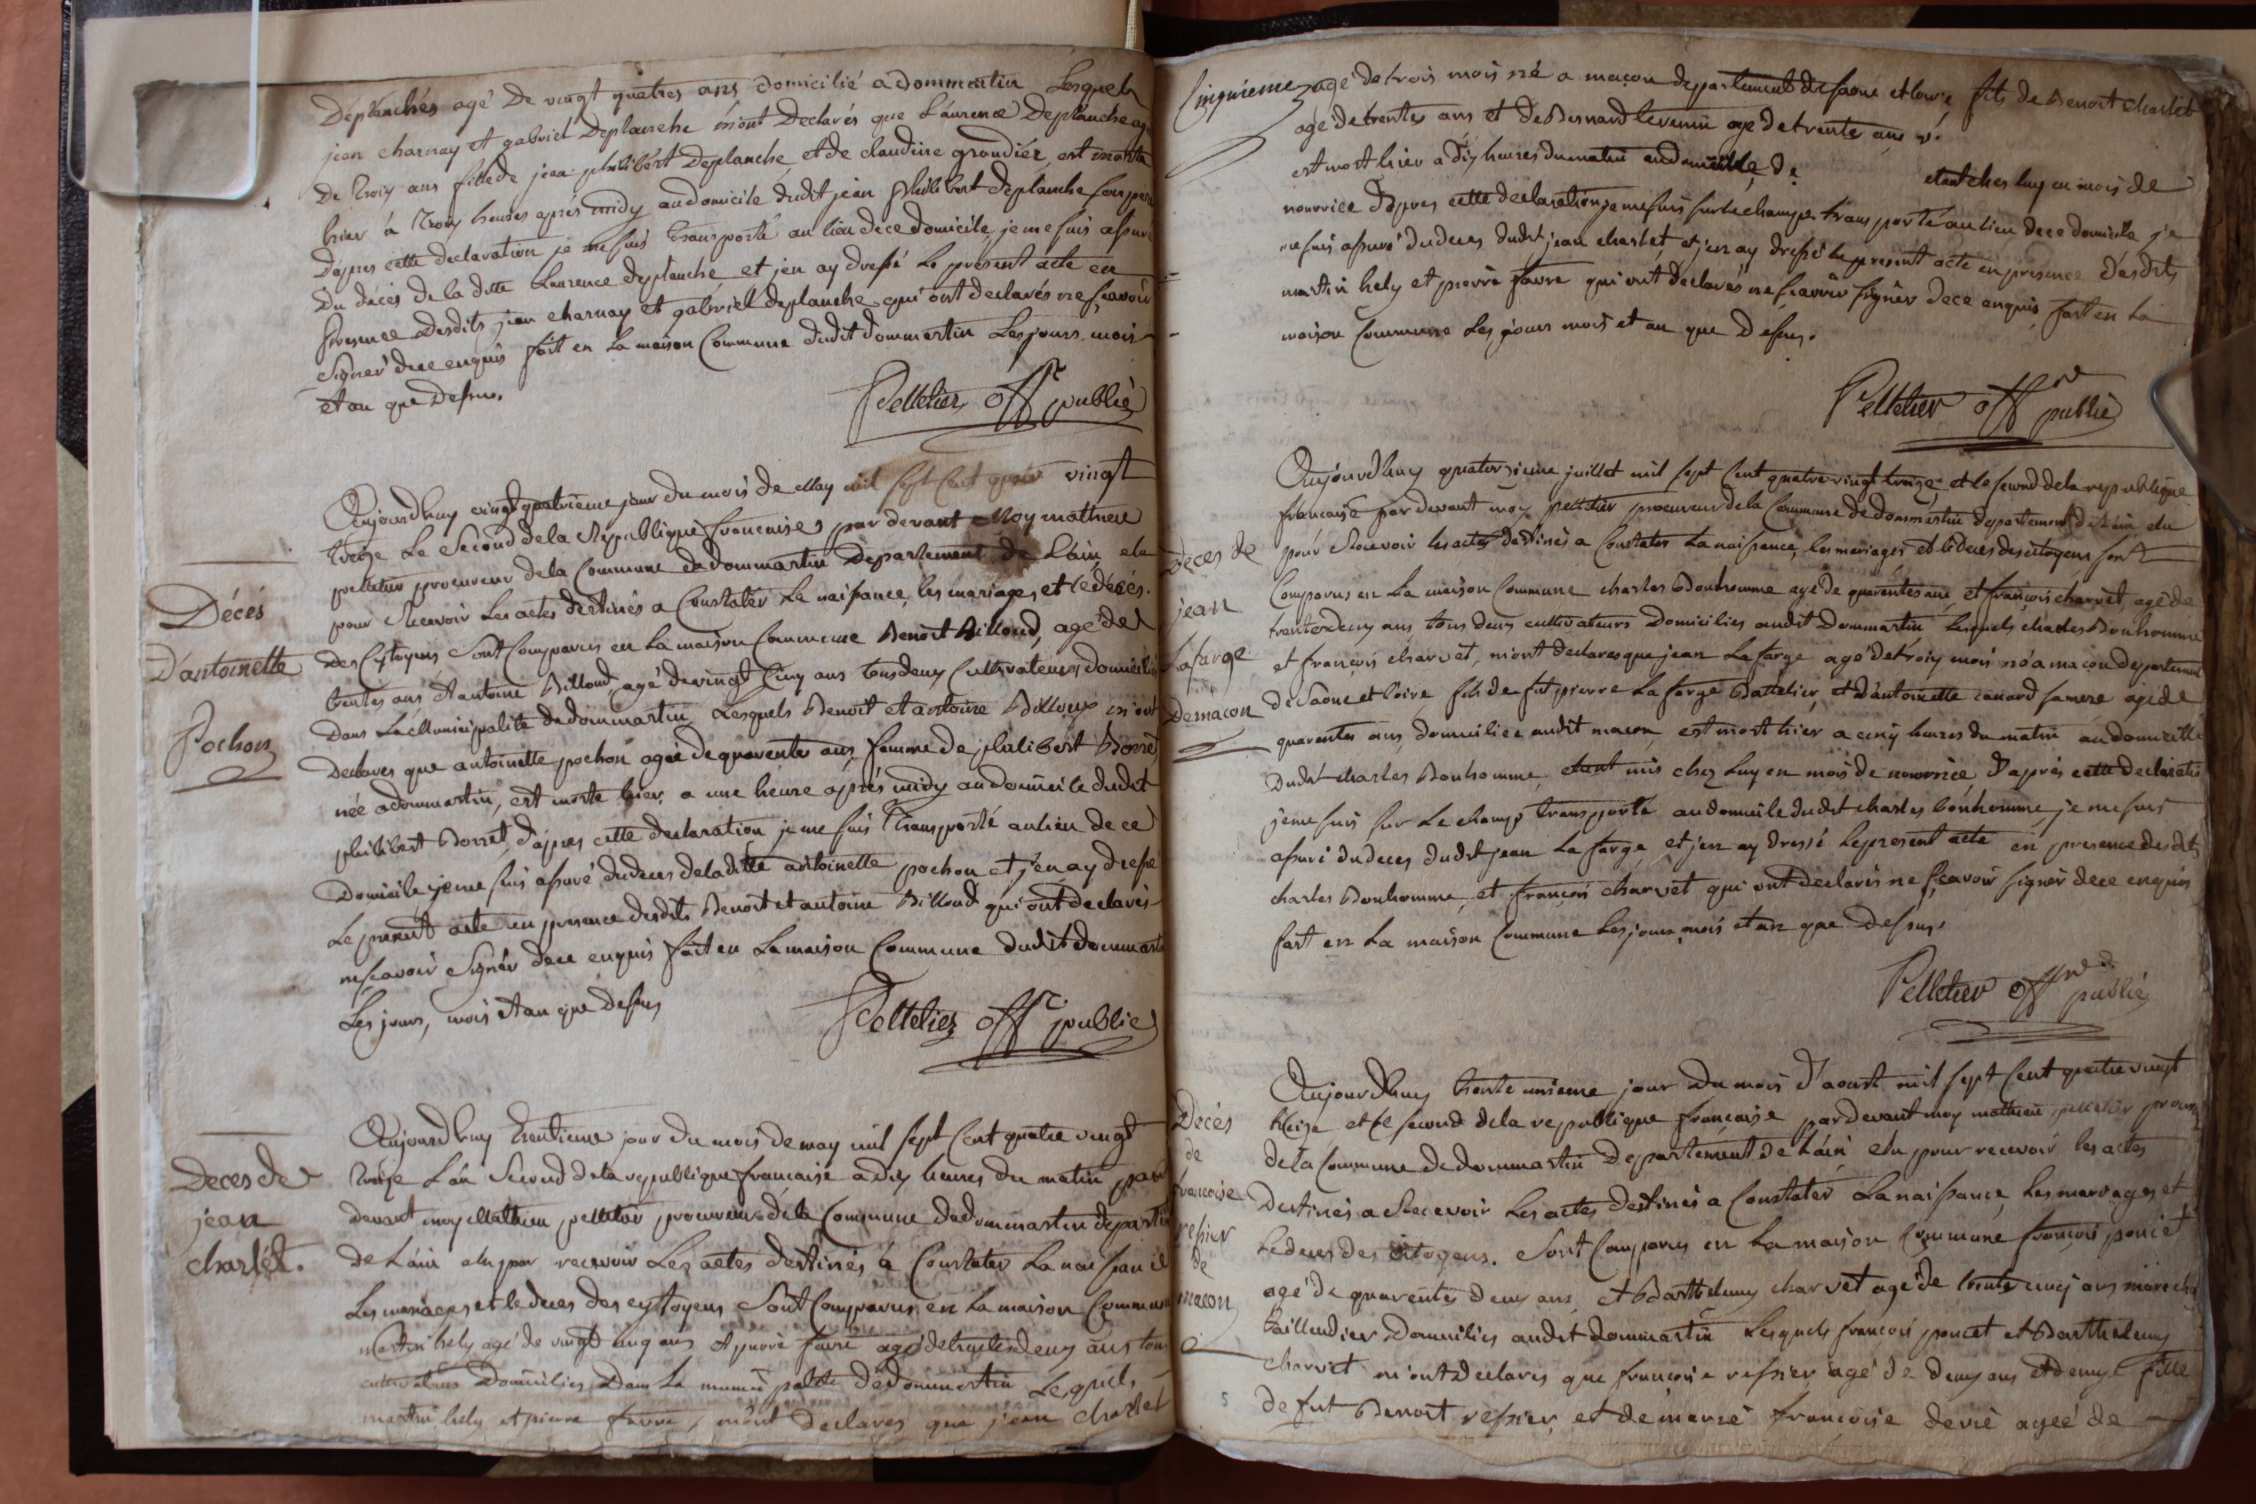 Deplanches agé De vingt quatres ans domicilié a Dommartin Lesquels
jean charnay et gabriel Deplanche m'ont Declarés que Laurence Deplanche agé
De Trois ans fille de jean philibert Deplanche et de claudine grondier, est morte
hier à Trois heures aprés midy au domicile dudit jean philibert Deplanche son pere
D'apres cette declaration je me suis Transporté au lieu de ce domicile, je me suis assuré
Du décés de la ditte Laurence deplanche et jen ay dressé Le présent acte en
presence desdits jean charnay et gabriel deplanche qui ont declarés ne scavoir
Signer de ce enquis fait en la maison Commune dudit dommartin Les jours mois
et an que Dessus.
Pelletier off publié
Décés
D'antoinette
Pochon
Aujourdhuy vingt quatrieme jour du mois de May mil sept Cent quatre vingt
treize Le Second de la Republique francaise par devant Moy mathieu
pelletier procureur de la Commune de dommartin Departement de Lain elu
pour Recevoir Les actes destinés a Constater La naissance, les mariages et le décés
des Cytoyens Sont Comparus en La maison Commune Benoit Billoud, agé de
trentes ans et antoine Billoud agé de vingt Cinq ans tous deux Cultivateurs domicilié
Dans La Municipalité de dommartin Lesquels Benoit et antoine Billoux m'ont
Declarés que antoinette pochon agée de quarente ans, femme de philibert Borret
née a dommartin, est morte hier, a une heure aprés midy au domicile dudit
philibert Borret, d'apres cette declaration je me suis Transporté au lieu de ce
Domicile je me suis assuré du deces de laditte antoinette pochon et j'en ay dressé
Le present acte en presence desdits Benoit et antoine Billoud qui ont declarés
ne scavoir Signer de ce enquis fait en La maison Commune dudit dommart
Les jours, mois et an que dessus
Pelletier off publié
Deces de
jean
charlet.
Aujourdhuy trentieme jour du mois de may mil sept Cent quatre vingt
treize L'an Second de la republique francaise a dix heures du matin par
devant moy Mathieu pelletier procureur de la Commune de dommartin departem
de Lain elu pour recevoir Les actes destinés à Constater La naissance
Les mariages et le deces des cytoyens Sont Comparus en La maison Commune
martin hely agé de vingt cinq ans et pierre favre agé de trentes deux ans tous
cultivateurs Domicilies Dans La municipalité de dommartin Lesquels
martin hely et pierre favre, m'ont declarés que jean charlet
Cinquieme
agé de trois mois né a macon departement de saone et loire fils de Benoit Charlet
agé de trentes ans et de Bernard agé de trente ans
est mort hier a dix heures du matin au domicille de etant ches luy en mois de
nourrice D'apres cette declaration je me suis sur le champs transporté au lieu de ce domicile je
me suis assuré du deces dudit jean charlet, et j'en ay dressé le present acte en presence desdits
martin hely et pierre favre qui ont declarés ne scavoir signer de ce enquis, fait en La
maison Commune Les jours mois et an que Dessus.
Pelletier off publié
Deces de
jean
Lafarge
De macon
Aujourdhuy quatorzieme juillet mil sept Cent quatre vingt treize et le second de la republique
francaise par devant moy pelletier procureur de la Commune de dommartin departement de Lain elu
pour Recevoir les actes destinés a Constater La naissance, les mariages et le deces des citoyens sont
Comparus en La maison Commune charles Bonhomme agé de quarentes ans et francois charvet, agé de
trentes deux ans tous deux cultivateurs Domicilies audit Dommartin Lesquels charles Bonhomme
et francois charvet, m'ont declares que jean Lafarge agé de troix mois né a macon departement
de Saone et loire, fils de fut pierre La farge Battelier, et d'antoinette canard sa mere agé de
quarentes ans, domiciliée audit macon, est mort hier a cinq heures du matin au domicille
Dudit charles Bonhomme, etant mis chez luy en mois de nourrice D'aprés cette declaratio
je me suis sur Le champs transporté au domicile dudit charles bonhomme, je me suis
assuré du deces dudit jean La farge, et jen ay dressé Le present acte en presence desdits
charles Bonhomme, et francois charvet qui ont declarés ne scavoir signer de ce enquis
fait en La maison Commune Les jours mois et an que dessus.
Pelletier off publié
Décés
de
francoise
ressier
de
macon
Aujourdhuy trente unieme jour du mois d'aoust mil sept Cent quatre vingt
treize et le second de la republique francaise par devant moy mathieu pelletier procur
de la Commune de dommartin Departement de Lain elu pour recevoir les actes
Destinés a Recevoir Les actes Destinés a Constater La naissance Les mariages et
Le deces des citoyens. Sont Comparus en La maison Commune francois poncet
agé de quarentes deux ans, et Barthelemy charvet agé de trente cinq ans
Taillandier, Domicilies audit dommartin Lesquels francois poncet et Barthelemy
charvet m'ont declarés que francoise ressier agé de deux ans et demy fille
de fut Benoit ressier, et de marie francoise agée de